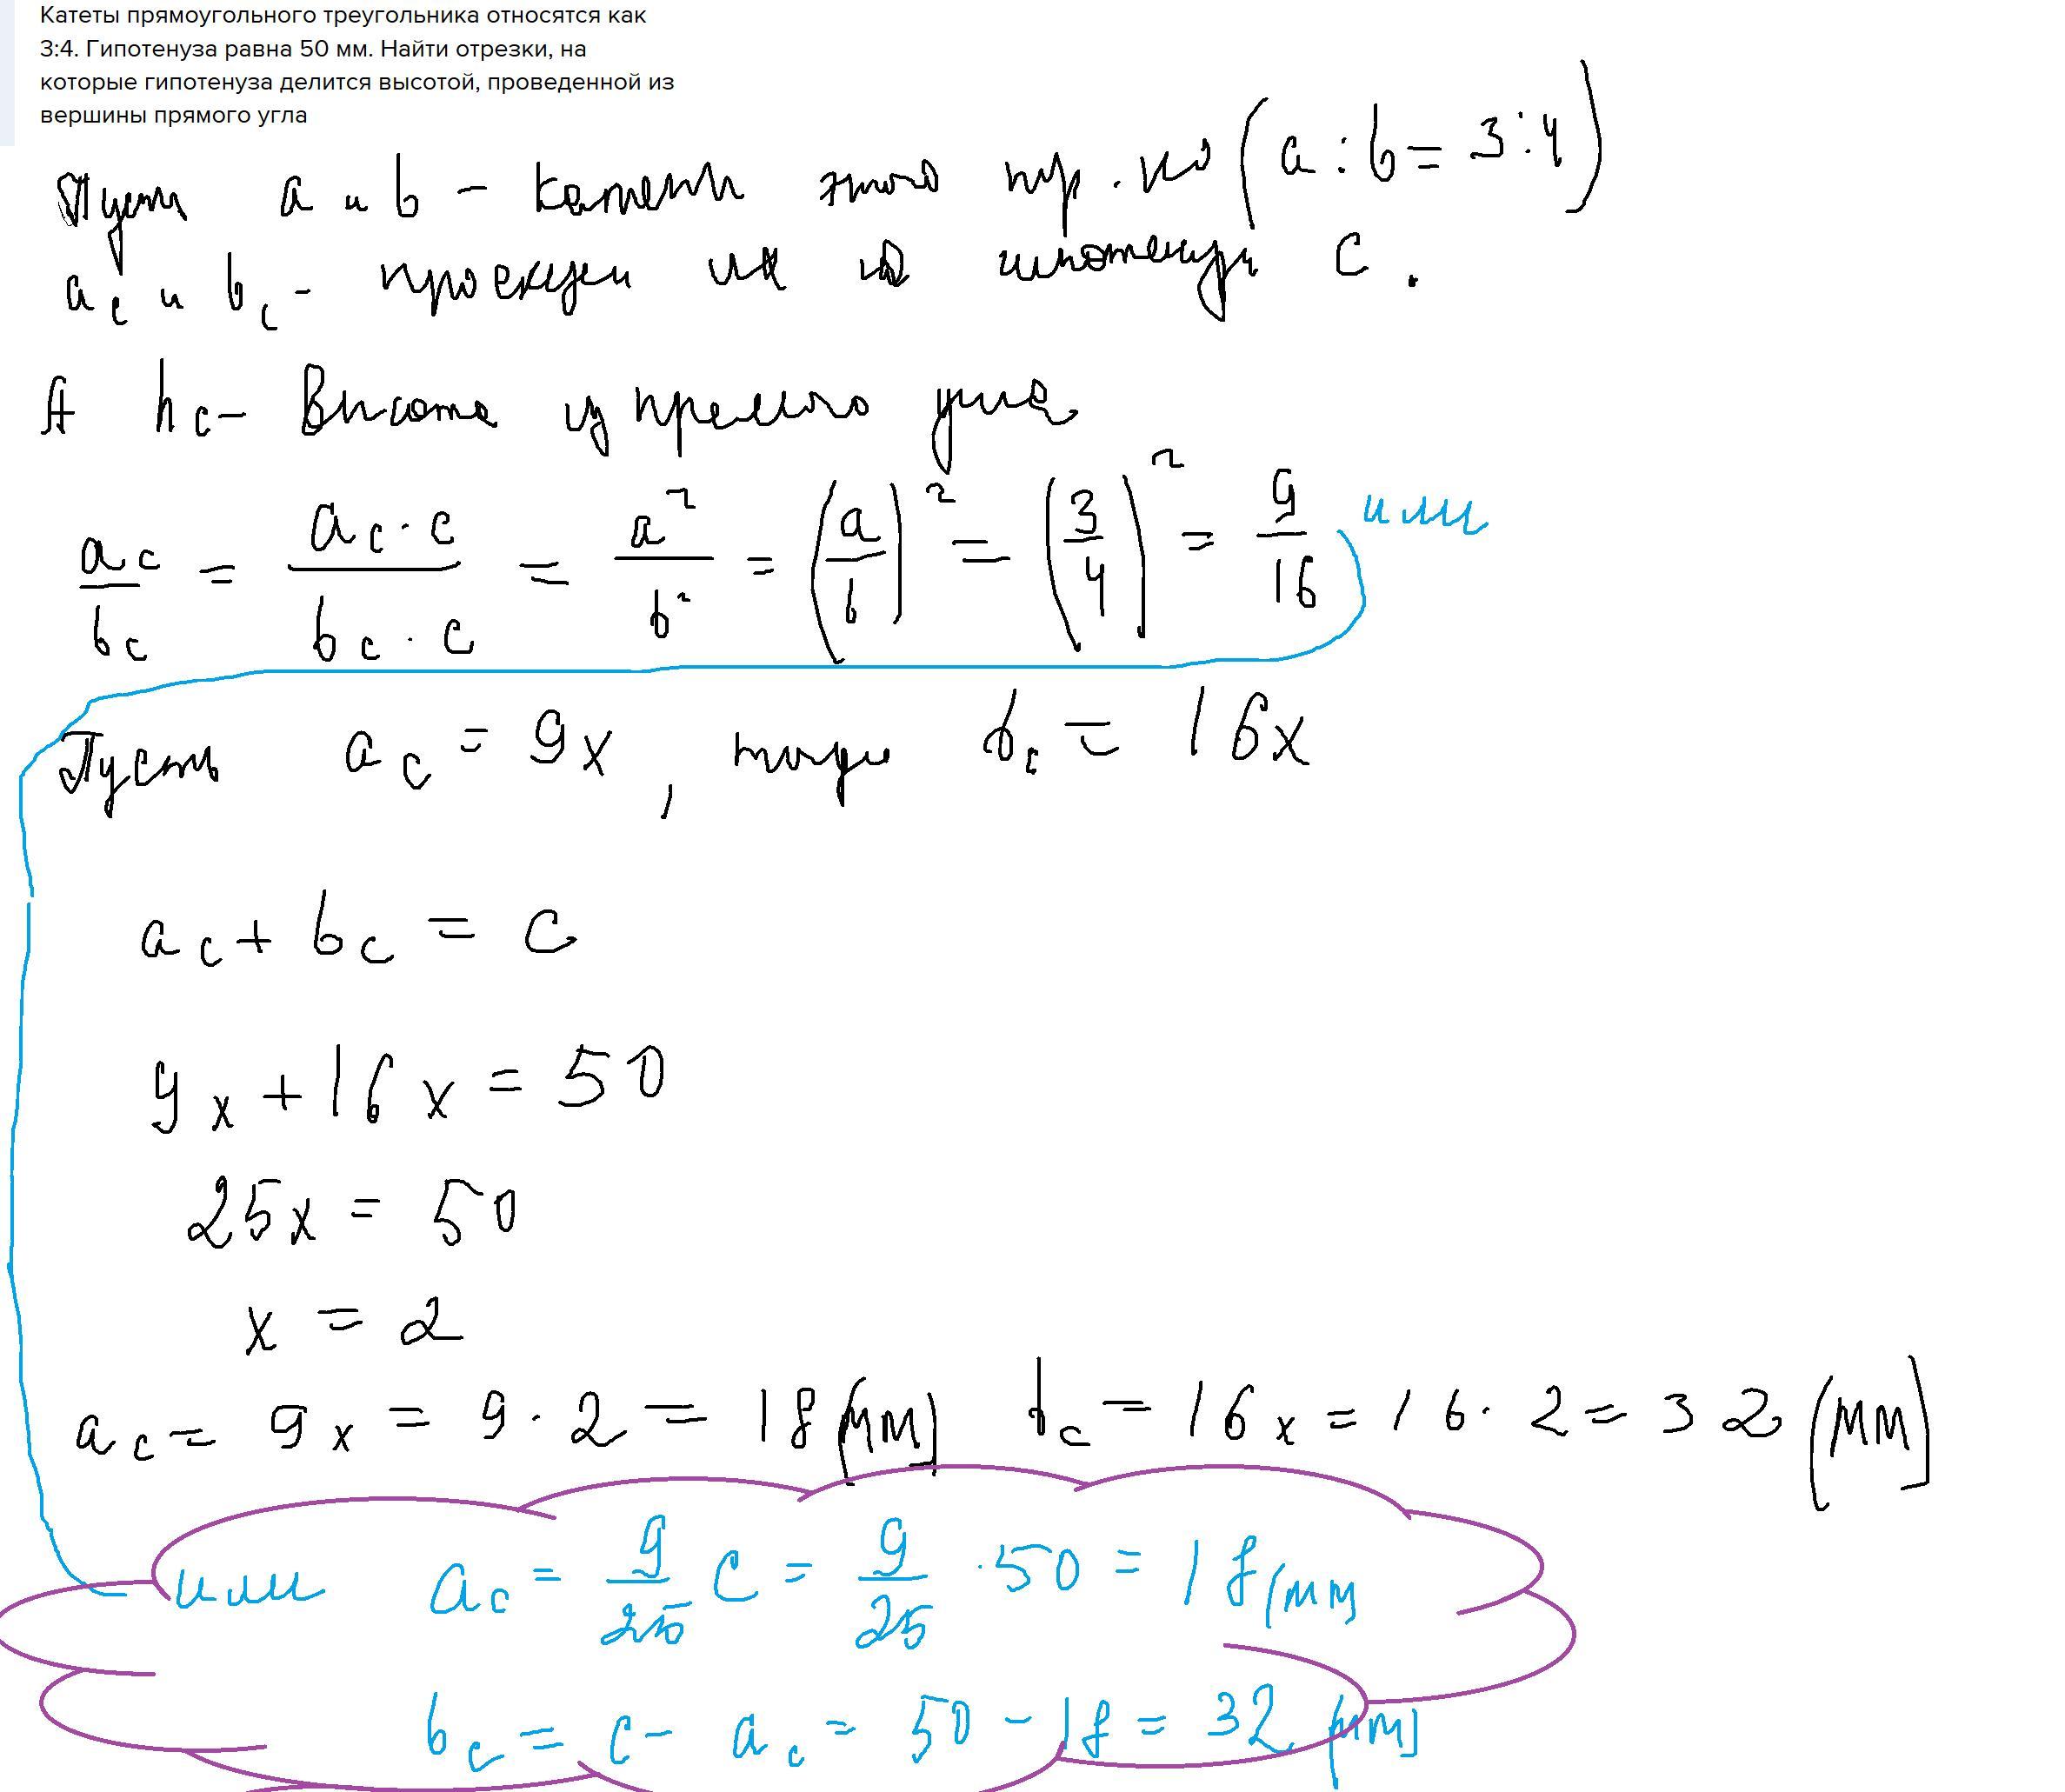 Катеты прямоугольного треугольника относятся как
3:4. Гипотенуза равна 50 мм. Найти отрезки, на
которые гипотенуза делится высотой, проведенной из
вершины прямого угла
Пусть a и b - катеты этого тр.-ка (a : b = 3:4)
a_c и b_c - проекции их на гипотенузу c.
А h_c - высота из прямого угла
a_c/b_c = (a_c · c)/(b_c · c) = a²/b² = (a/b)² = (3/4)² = 9/16 или
Пусть a_c = 9x, тогда b_c = 16x
a_c + b_c = c
9x + 16x = 50
25x = 50
x = 2
a_c = 9x = 9 · 2 = 18 (мм) b_c = 16x = 16 · 2 = 32 (мм)
или a_c = 9/25 c = 9/25 · 50 = 18 (мм
b_c = c - a_c = 50 - 18 = 32 (мм)